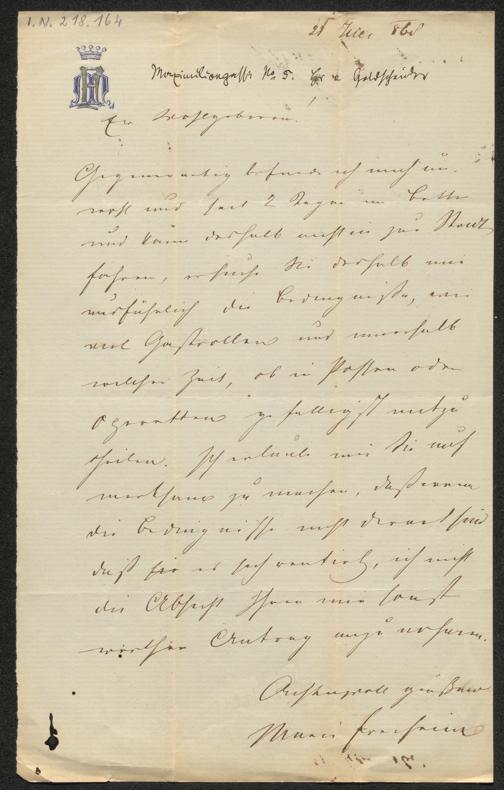 I.N. 218.164
28 Juli 868
Maximiliangasse No 5. Goldschmidt
Ew Wohlgeboren!
Gegenwärtig befinde ich mich un-
wohl und seit 2 Tagen im Bette
und kann deshalb nicht in zur Stadt
fahren, ersuche Sie deshalb mir
ausführlich die Bedingnisse, wie
viel Gastrollen und innerhalb
welcher Zeit, ob in Possen oder
Operetten gefälligst mitzu
theilen. Ich erlaube mir Sie auf
merksam zu machen, daß wenn
die Bedingnisse nicht derart sind
daß es sich rentirt, ich nicht
die Absicht Ihren mir sonst
werthen Antrag anzunehmen.
Achtungsvoll
Marie